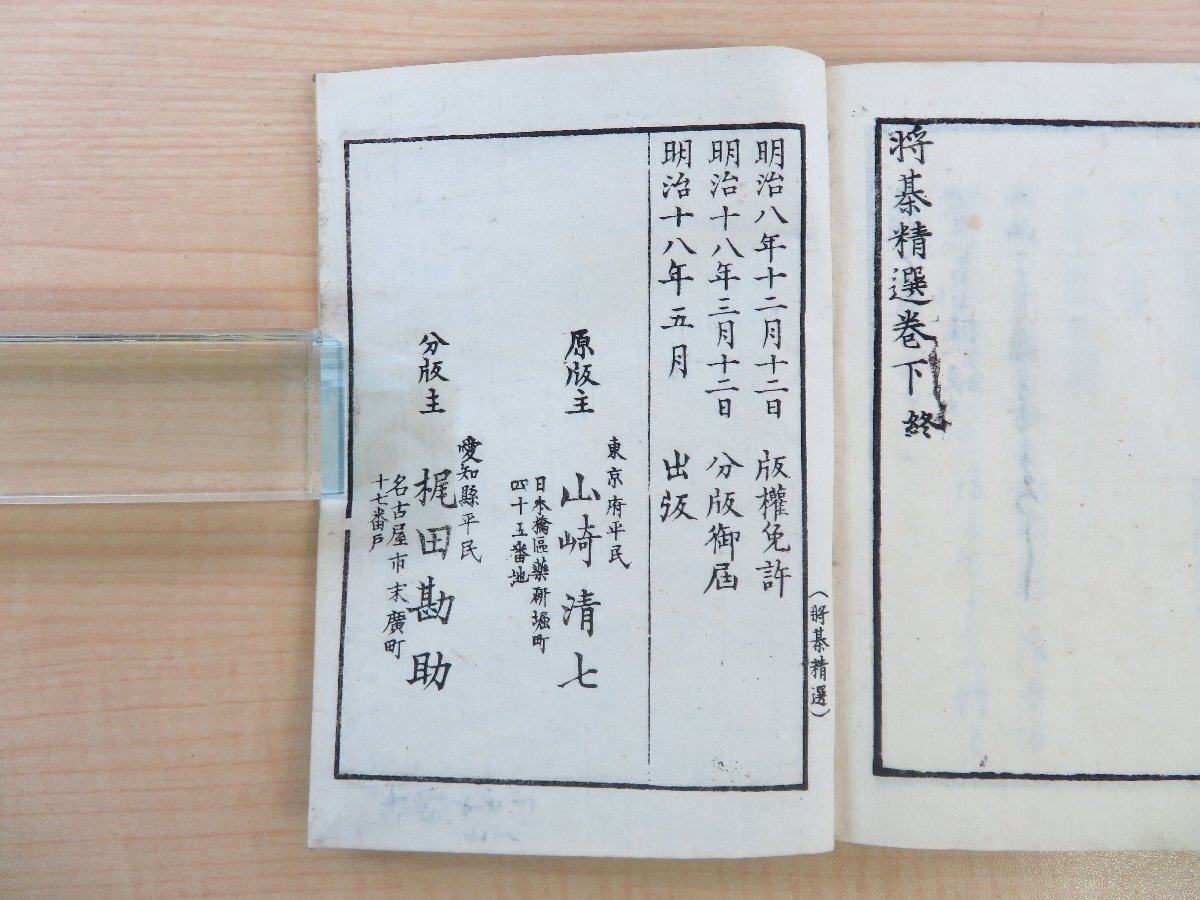 將棊精選卷下終
明治八年十二月十二日 版權免許
明治十八年三月十二日 分版御屆
明治十八年五月 出版
東京府平民
原版主 山崎清七
日本橋區藥研堀町
四十五番地
愛知縣平民
分版主 梶田勘助
名古屋市末廣町
十七番戸
(將棊精選)